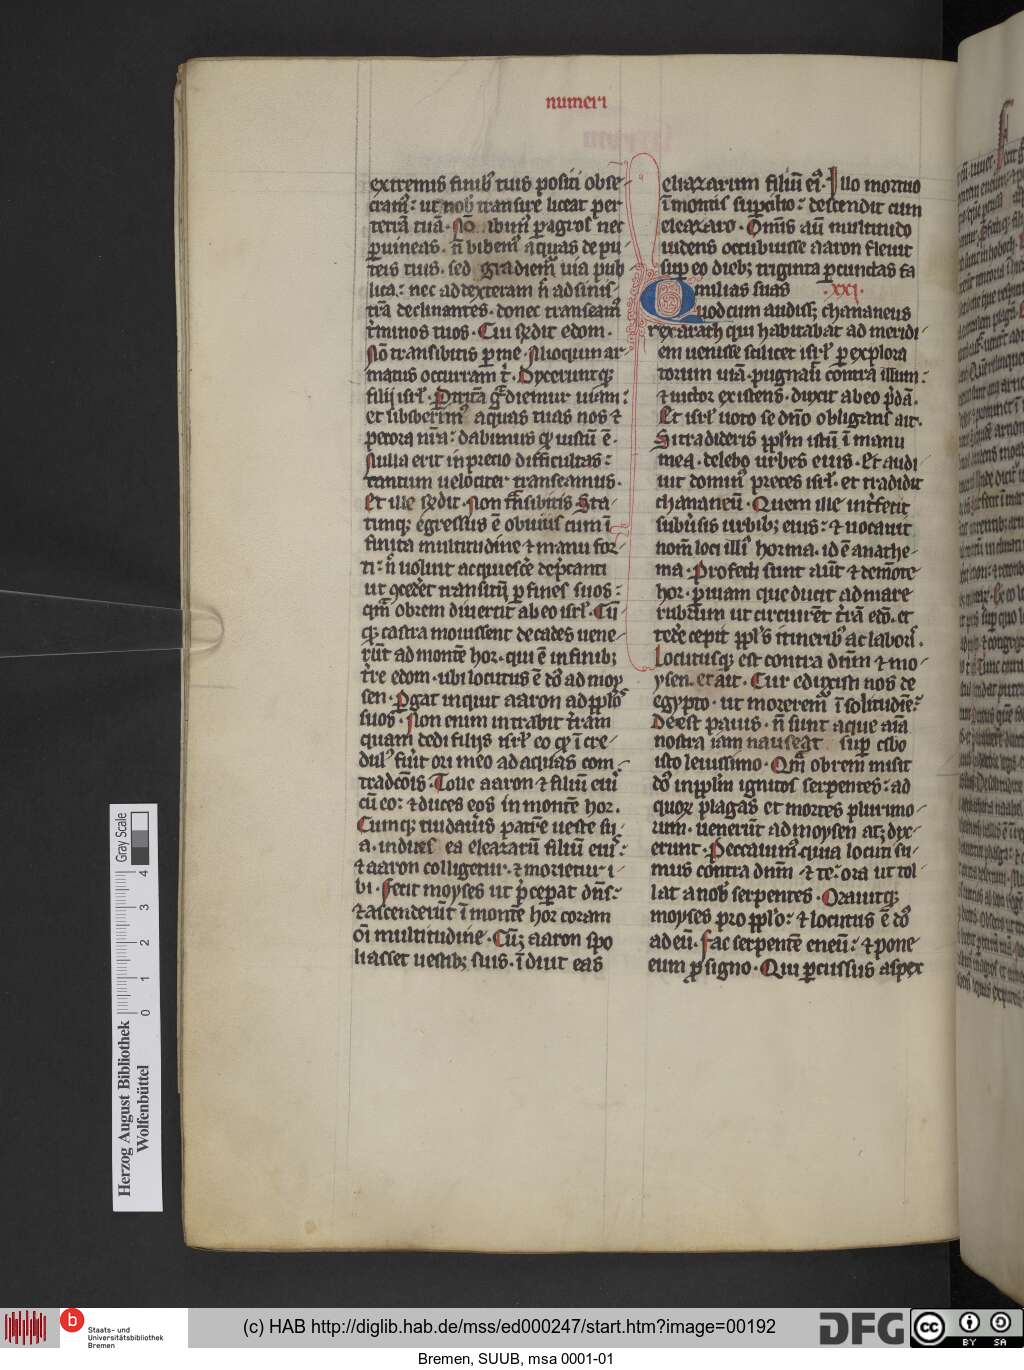 numeri
extremis finib' tuis positi obse-
cram': ut nob' transire liceat per
terrā tuā. Nō ibim' p agros nec
p uineas. n̄ bibem' aquas de pu-
teis tuis. sed gradiem' uia pub
lica: nec ad dexteram n̄ ad sinis-
trā declinantes. donec transeam'
t'minos tuos. Cui r̄ndit edom.
Nō transibitis p me. Alioquin ar-
matus occurram t'. Dixeruntq;
filij isrl'. P trita g̃diemur uiam:
et si biberim' aquas tuas nos ⁊
pecora nr̄a: dabimus qđ iustū ē.
Nulla erit in precio difficultas:
tantum uelociter transeamus.
Et ille r̄ndit. Non t̃nsibitis. Sta-
timq; egressus ē obuius cum ī
finita multitudine ⁊ manu for-
ti: n̄ uoluit acquiesc'e dep̄canti
ut 9cederet transitū p fines suos:
qm̄ obrem diuertit ab eo isrl'. Cū
q; castra mouissent de cades uene-
rūt ad monte hor. qui ē in finib;
t're edom. ubi locutus ē dō ad moy
sen. Pgat inquit aaron ad pplō
suos. Non enim intrabit t'ram
quam dedi filijs isrl' eo qđ ī cre-
dul' fuit ori meo ad aquas com-
tradc̄ois. Tolle aaron ⁊ filiū eiu'
cū eo: ⁊ duces eos in monte hor.
Cumq; nudau'is patre ueste su-
a. indues ea eleazarū filiū eiu':
⁊ aaron colligetur. ⁊ morietur i-
bi. Fecit moyses ut p̄ceperat dn̄s:
⁊ ascenderūt ī monte hor coram
oī multitudine. Cūq; aaron spo
liasset uestib; suis. īduit eas
eliazarum filiū ei'. Illo mortuo
ī montis supcilio: descendit cum
eleazaro. Omīs aū multitudo
uidens occubuisse aaron fleuit
sup eo dieb; triginta p cunctas fa
milias suas .xxi.
Quod cum audiss; chananeus
rex arath qui habitabat ad meridi-
em uenisse scilicet isrl' p explora
torum uiā. pugnau' contra illum:
⁊ uictor existens. duxit ab eo p̄dā.
Et isrl' uoto se dn̄o obligans ait.
Si tradideris pplm istū ī manu
mea. delebo urbes eius. Et audi-
uit domin' preces isrl'. et tradidit
chananeū. Quem ille int'fecit
subu'sis urbib; eius: ⁊ uocauit
nom̄ loci illi' horma. id ē anathe-
ma. Profecti sunt aūt ⁊ de mōte
hor. p uiam que ducit ad mare
rubrum ut circuirēt t'rā edō. et
tedere cepit ppl's itineris ac labor'.
Locutusq; est contra dn̄m ⁊ mo-
ysen. et ait. Cur eduxisti nos de
egypto. ut morerem' ī solitudiē:
Deest panis. n̄ sunt aque aīa
nostra iam nauseat sup cibo
isto leuissimo. Qm̄ obrem misit
dō in pplm ignitos serpentes: ad
quor plagas et mortes plurimo-
rum. uenerūt ad moysen atq; dix-
erunt. Peccauim' quia locuti su-
mus contra dn̄m ⁊ te. ora ut tol-
lat a nob' serpentes. Orauitq;
moyses pro pplo: ⁊ locutus ē dō
ad eū. Fac serpente eneū: ⁊ pone
eum p signo. Qui pcussus aspex
Gray Scale
0 1 2 3 4
Herzog August Bibliothek
Wolfenbüttel
b
Staats- und
Universitätsbibliothek
Bremen
(c) HAB http://diglib.hab.de/mss/ed000247/start.htm?image=00192
DFG
cc BY SA
Bremen, SUUB, msa 0001-01